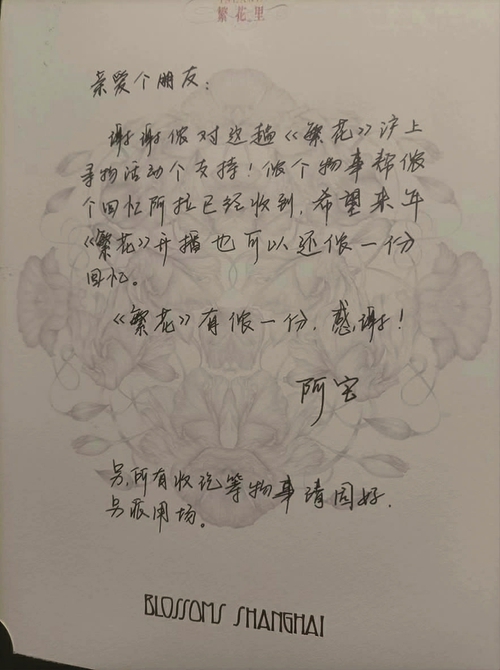 繁花里
亲爱个朋友:
谢谢侬对这趟《繁花》沪上
寻物活动个支持!侬个物事帮侬
个回忆阿拉已经收到,希望来年
《繁花》开播也可以还侬一份
回忆。
《繁花》有侬一份,感谢!
阿宝
另,所有收讫等物事请囥好,
另派用场。
BLOSSOMS SHANGHAI